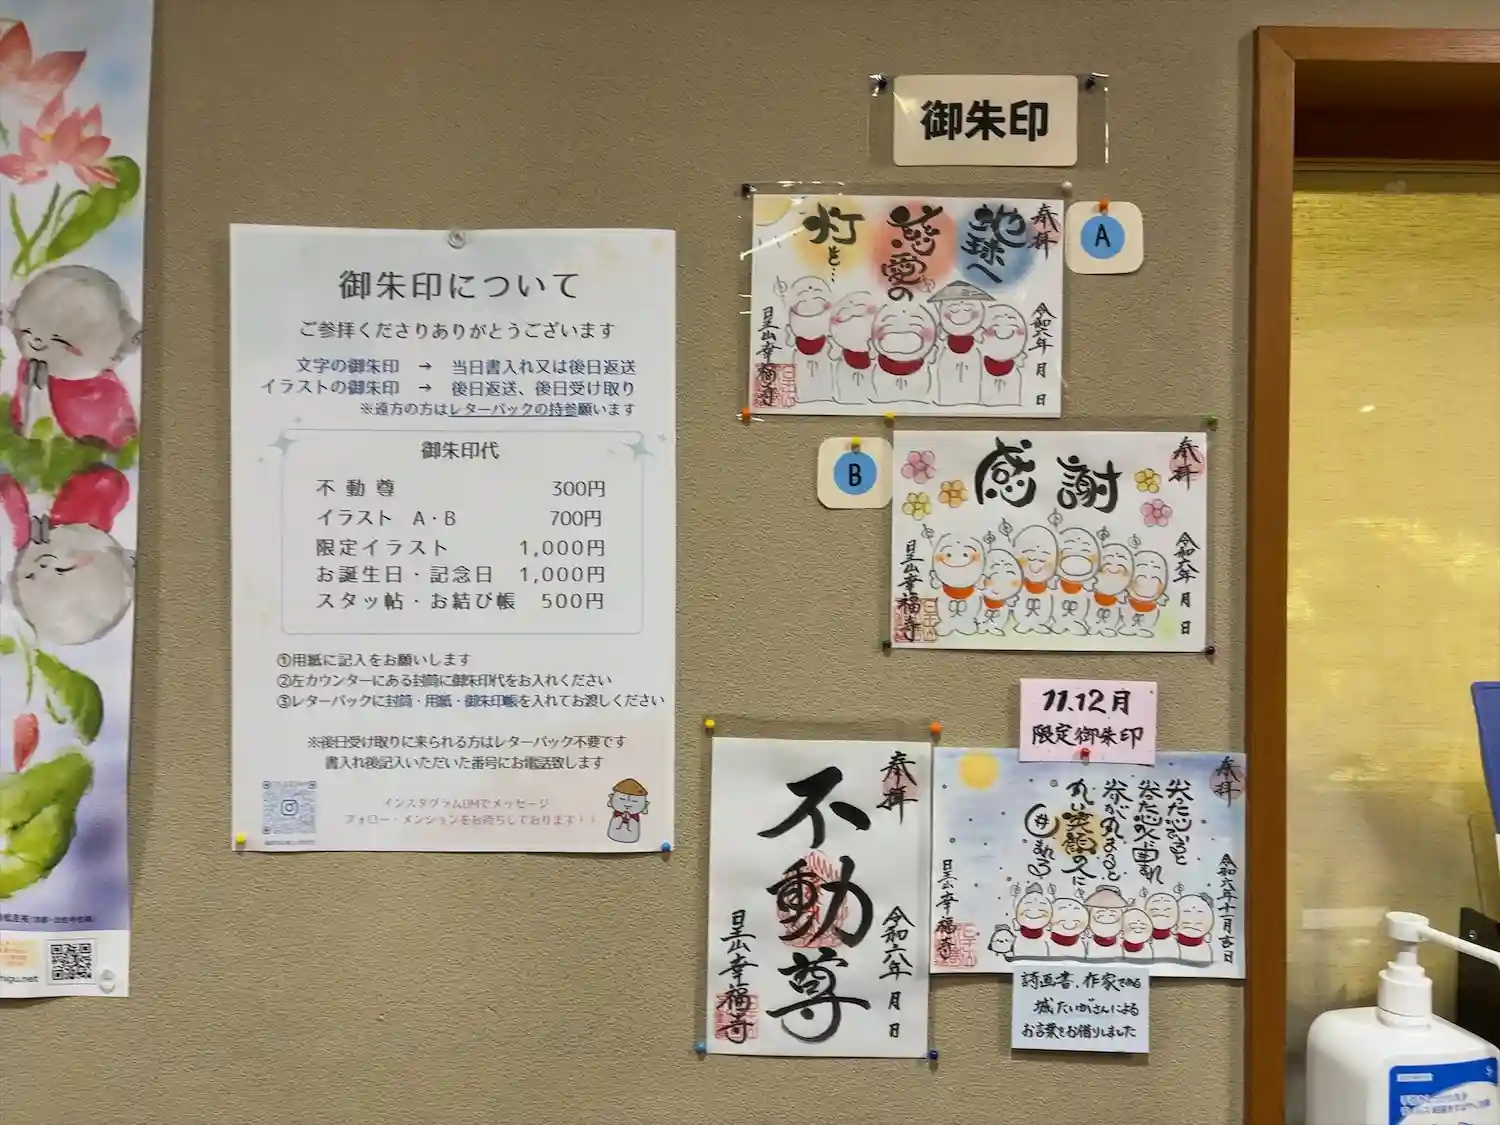 御朱印について
ご参拝くださりありがとうございます
文字の御朱印 → 当日書入れ又は後日返送
イラストの御朱印 → 後日返送、後日受け取り
※遠方の方はレターパックの持参願います
御朱印代
不動尊 300円
イラスト A・B 700円
限定イラスト 1,000円
お誕生日・記念日 1,000円
スタッ帖・お結び帳 500円
①用紙に記入をお願いします
②左カウンターにある封筒に御朱印代をお入れください
③レターパックに封筒・用紙・御朱印帳を入れてお渡しください
※後日受け取りに来られる方はレターパック不要です
書入れ後記入いただいた番号にお電話致します
インスタグラムDMでメッセージ
フォロー・メンションをお待ちしております!!
御朱印
A
奉拝
地球へ
慈愛の
灯を…
令和六年 月 日
呈山幸福寺
B
奉拝
感謝
令和六年 月 日
呈山幸福寺
奉拝
不動尊
令和六年 月 日
呈山幸福寺
11.12月
限定御朱印
奉拝
尖た心でいると
尖た心の人に囲まれ
心が丸まると
丸い笑顔の人に
囲まれる
令和六年十一月吉日
呈山幸福寺
詩画書・作家である
城たいがさんによる
お言葉をお借りしました